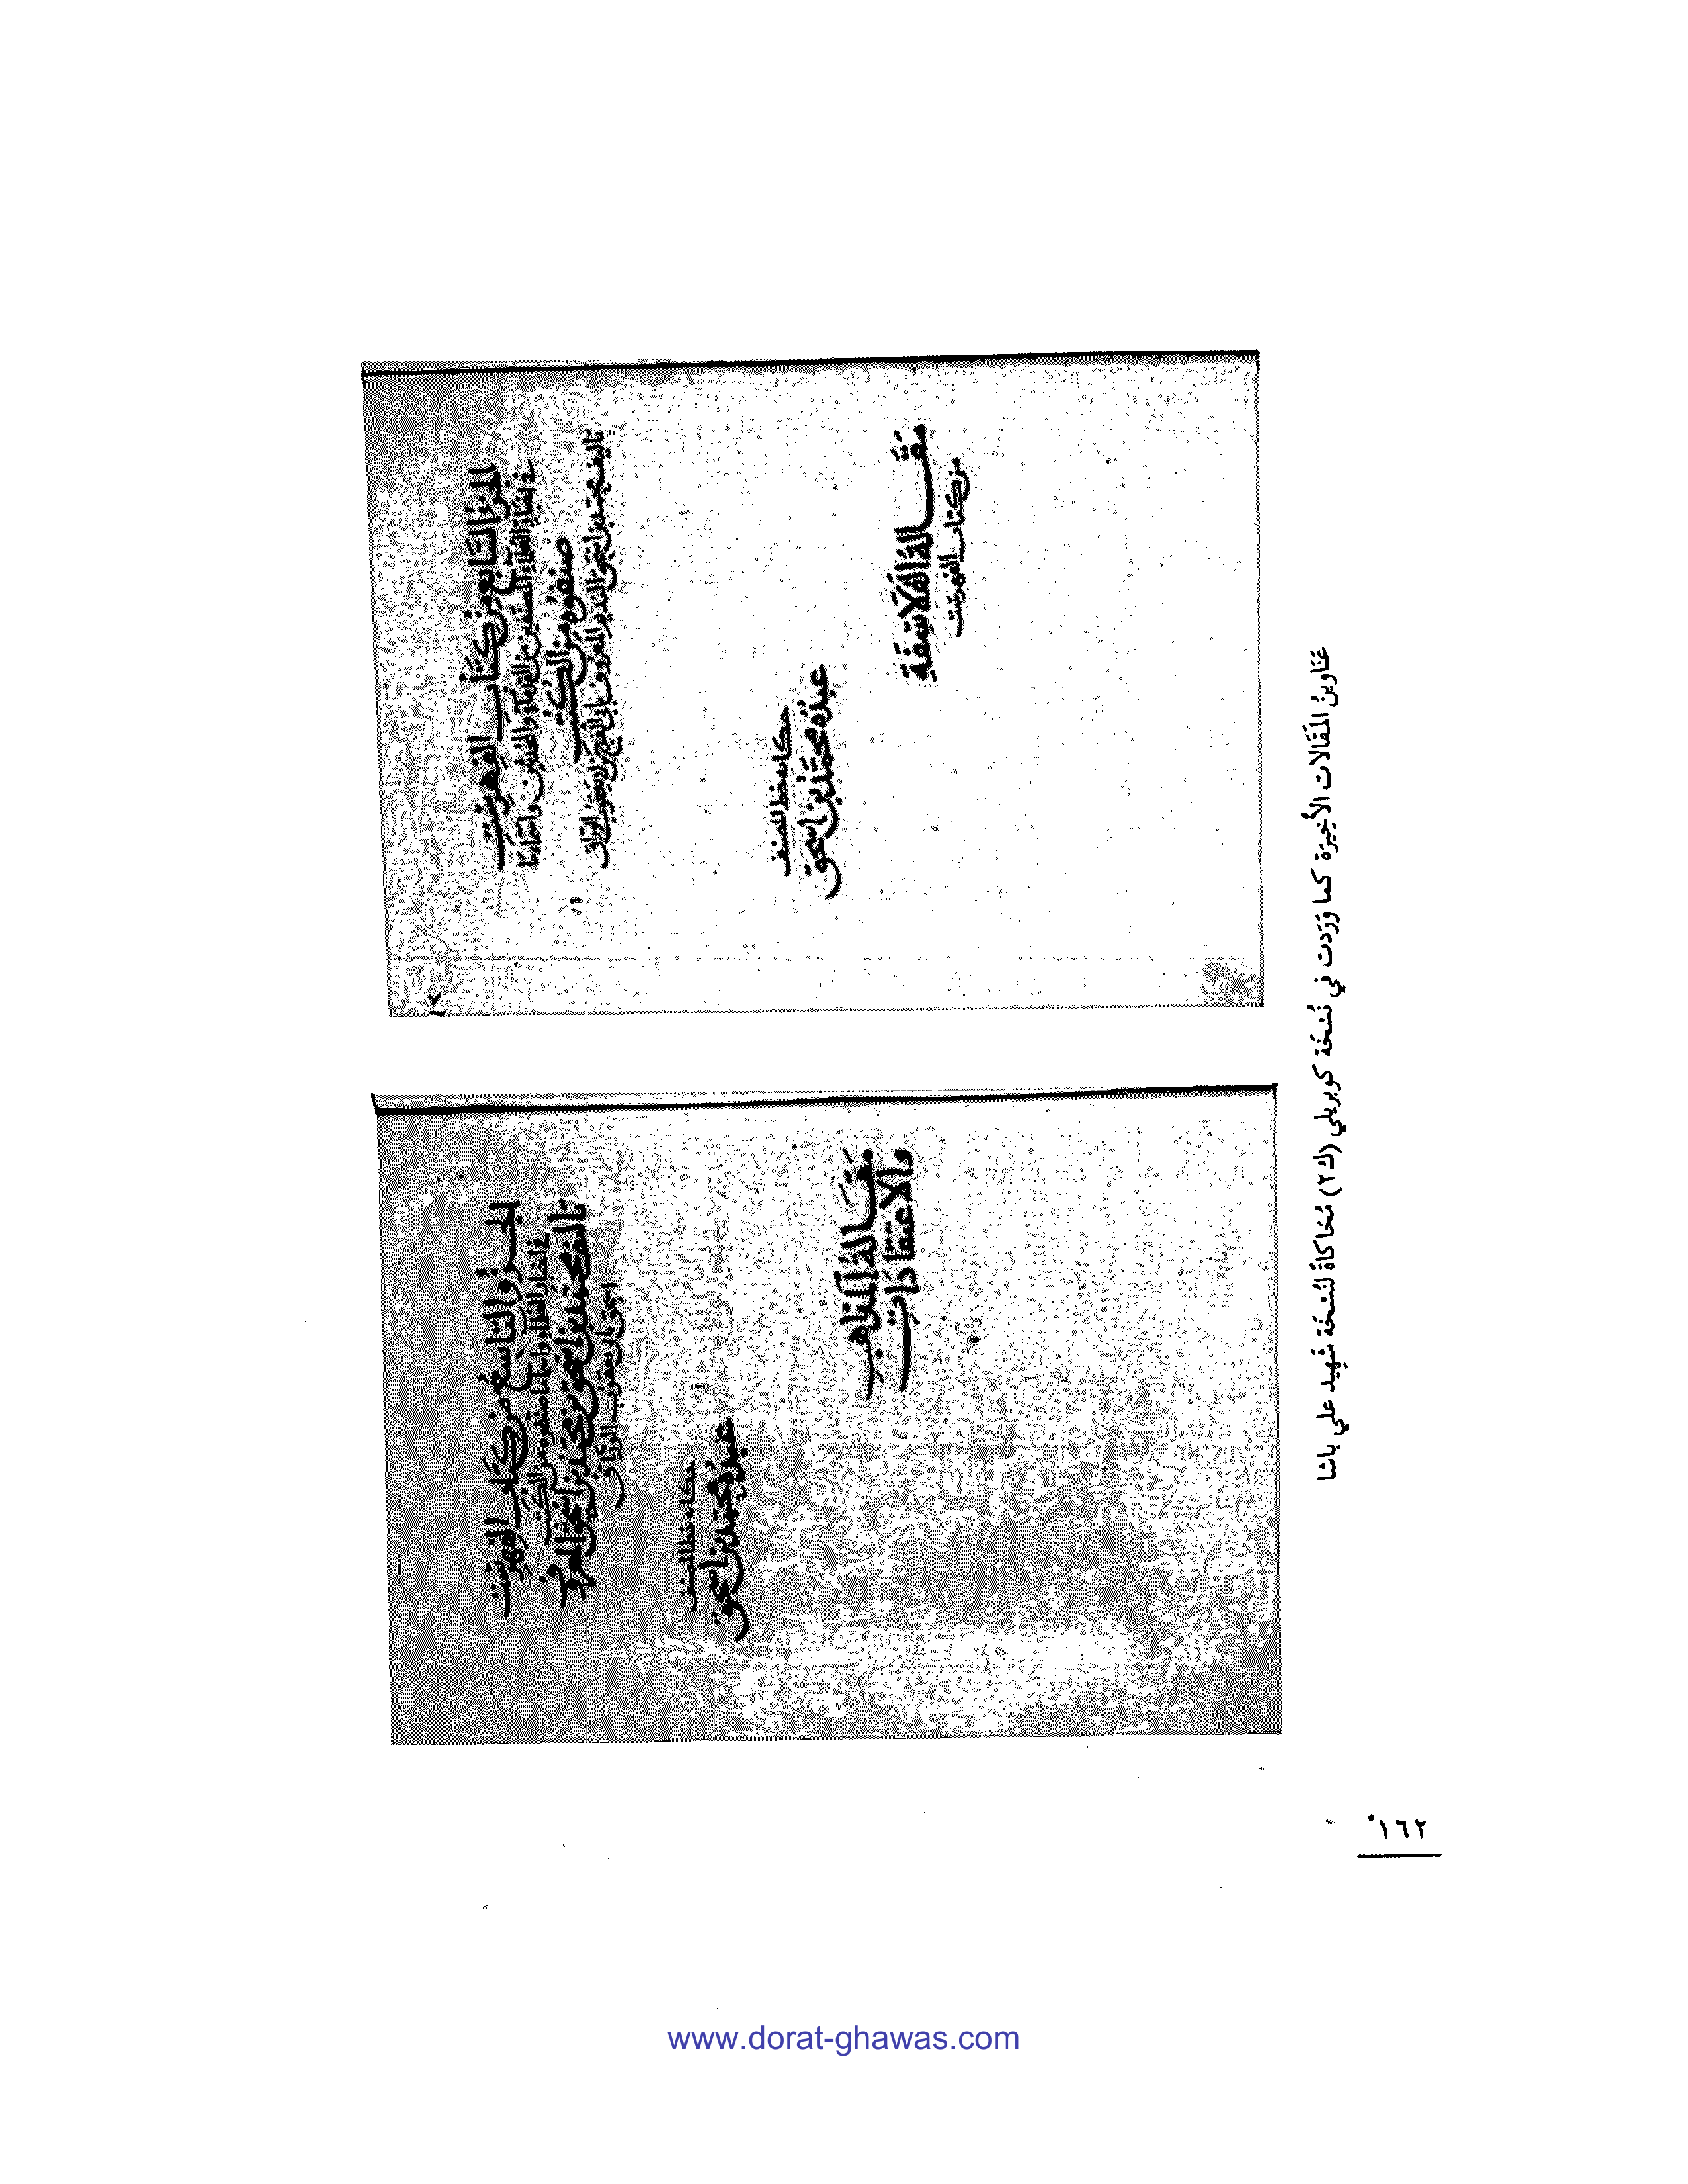 الجزء السابع من كتاب الفهرست
في اخبار العلماء المصنفين من القدماء والمحدثين واسماء ما
صنفوه من الكتب
تاليف محمد بن اسحق النديم المعروف بابي الفرج بن ابي يعقوب الوراق
حكاية خط المصنف
عبده محمد بن اسحق
مقالة الفلاسفة
من كتاب الفهرست
الجزؤ التاسع من كتاب الفهرست
في اخبار العلماء واسما ما صنفوه من الكتب
تاليف محمد بن اسحق بن محمد بن اسحق المعروف
اسحق بابي يعقوب الوراق
حكاية خط المصنف
عبده محمد بن اسحق
مقالة المذاهب
والاعتقادات
عَنَاوِينُ المَقَالات الأخِيرَة كما وَرَدَت في نُسْخَة كوبريلي (ك٢) مُحَاكاةً لنُسْخَة شَهِيد علي باشا
١٦٢*
www.dorat-ghawas.com